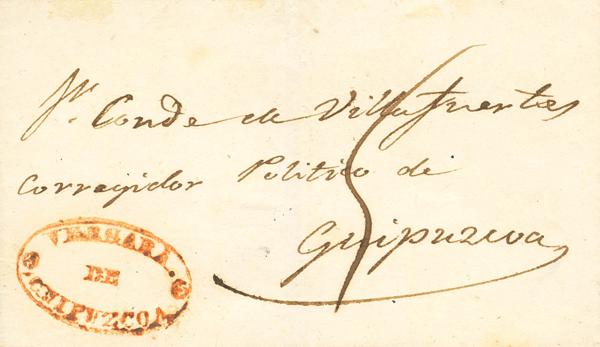 Sr. Conde de Villafuertes
Corregidor Politico de
Guipuzcoa
VERGARA.
DE
GUIPUZCOA
5